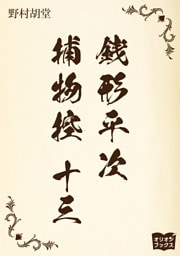 野村胡堂
銭形平次
捕物控 十三
オリオン
ブックス